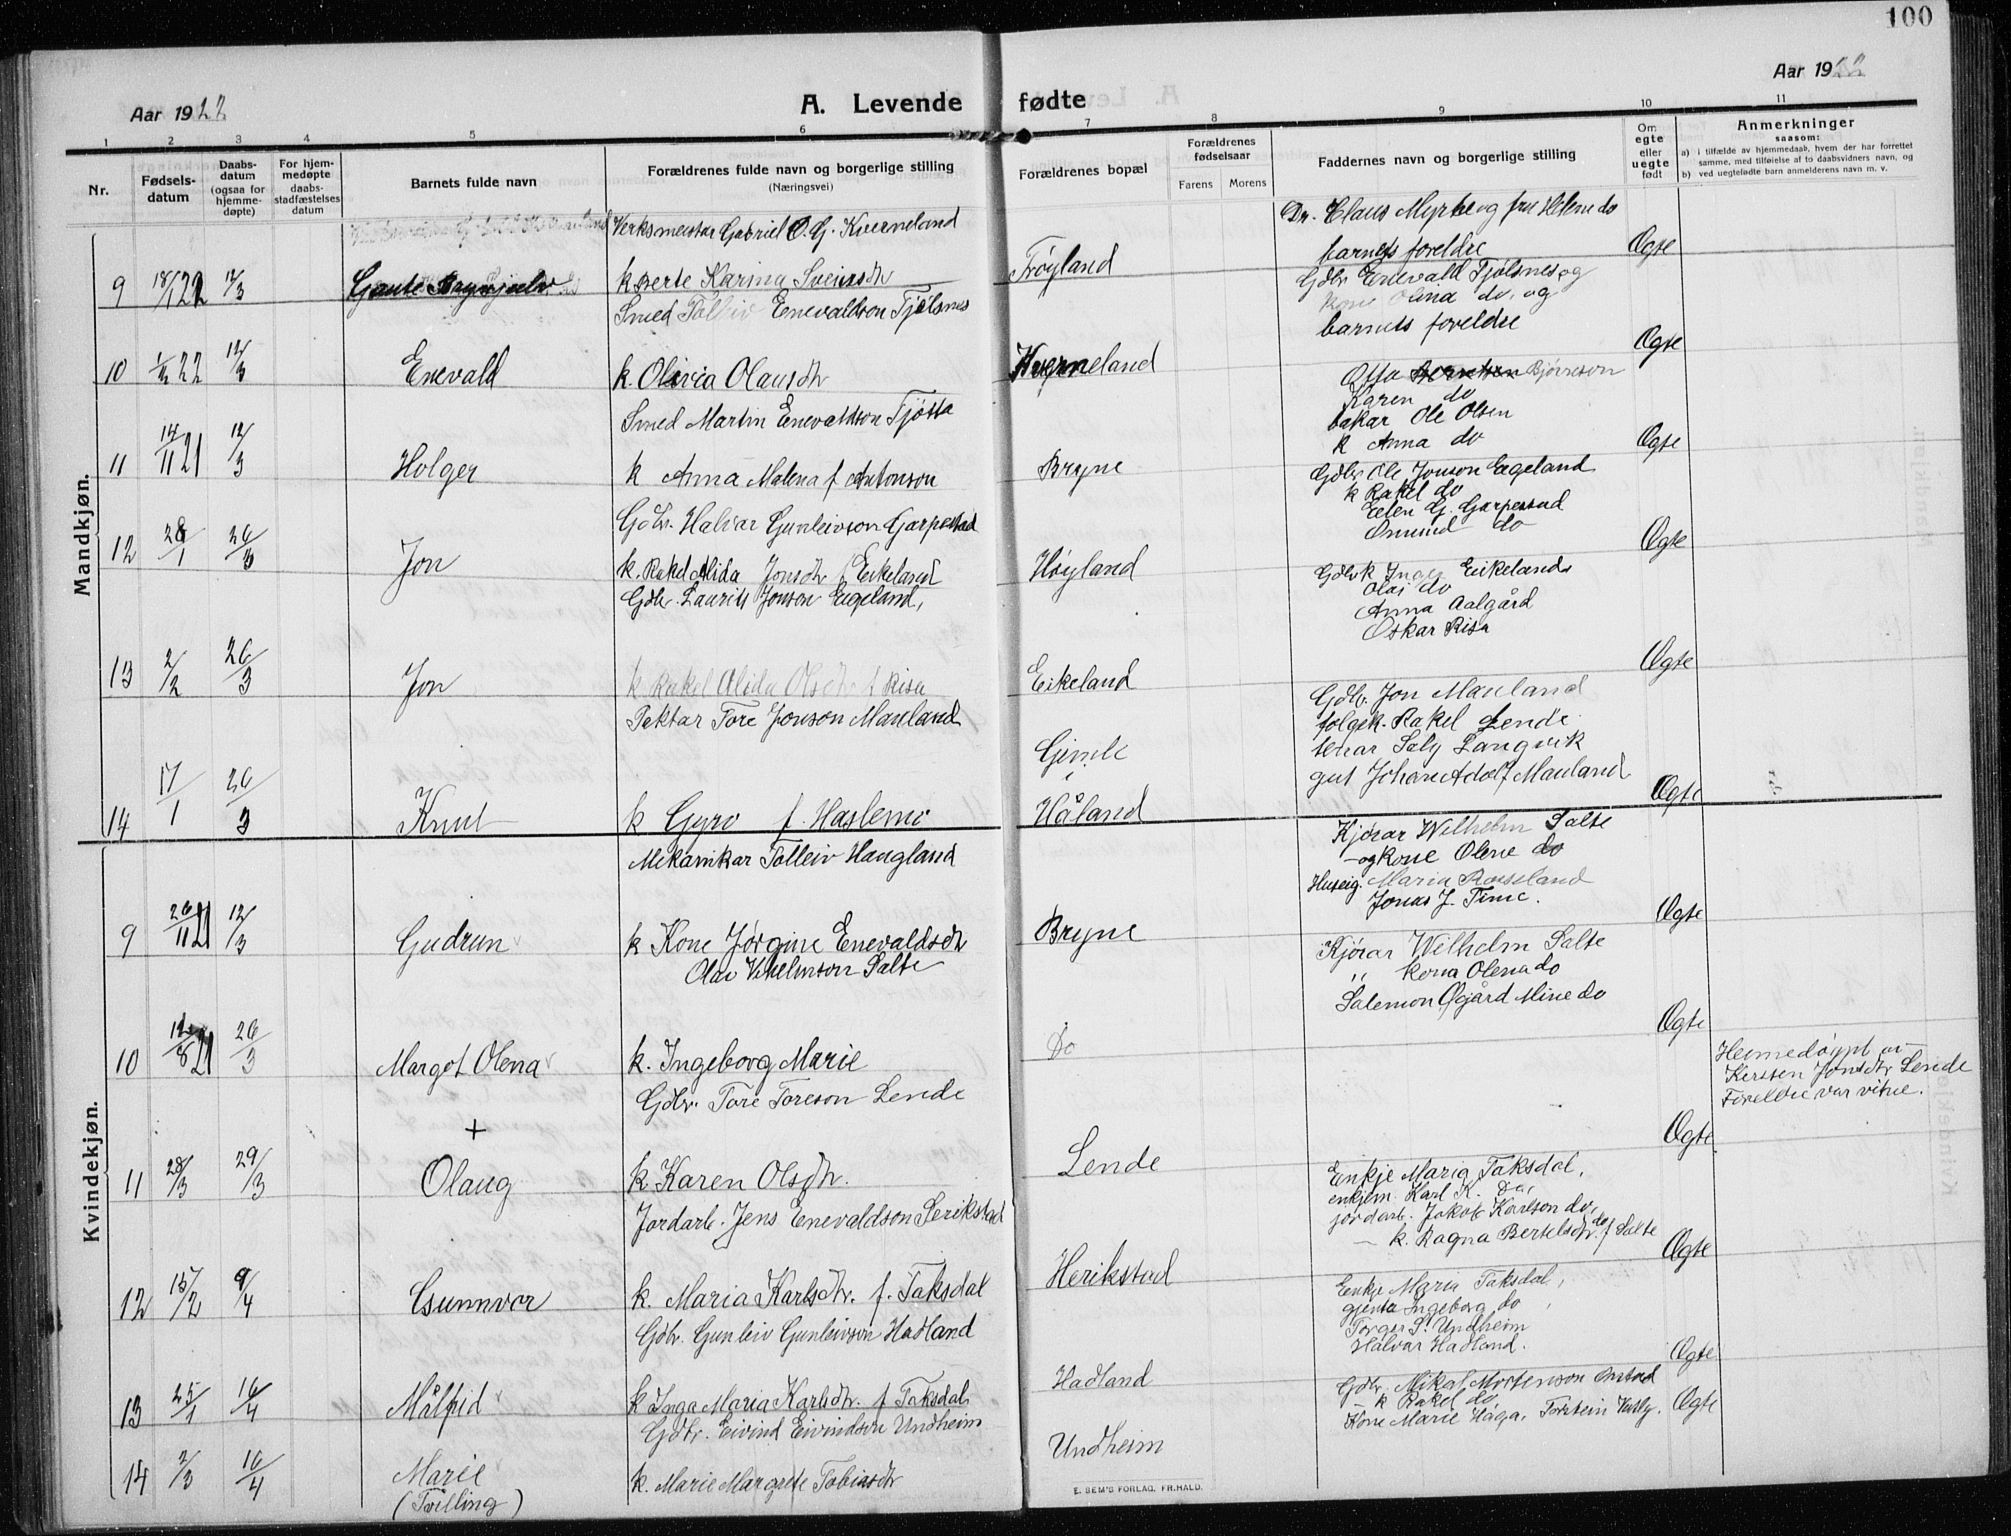 100
Aar 1922
A. Levende fødte
Aar 1922
1 2 3 4 5 6 7 8 9 10 11
Nr.
Fødsels-
datum
Daabs-
datum
(ogsaa for
hjemme-
døpte)
For hjem-
medøpte
daabs-
stadfæstelses
datum
Barnets fulde navn
Forældrenes fulde navn og borgerlige stilling
(Næringsvei)
Forældrenes bopæl
Forældrenes
fødselsaar
Farens Morens
Faddernes navn og borgerlige stilling
Om
egte
eller
uegte
født
Anmerkninger
saasom:
a) i tilfælde av hjemmedaab, hvem der har forrettet
samme, med tilføielse af to daabsvidners navn, og
b) ved uegtefødte barn anmelderens navn m. v.
Mandkjøn.
Verksmeistar Gabriel O. G. Kverneland
Dr. Claus Myrbe og fru Helene do
barnets foreldre
9 18/1 22 12/3 Gaute k Berte Karina Sveinsdtr Frøyland Ægte
Smed Tolleiv Enevaldson Tjølsnes
Gdbr. Enevald Tjølsnes og
kone Olena do, og
barnets foreldre
10 1/2 22 12/3 Enevald k Olivia Olausdtr Kverneland Ægte
Smed Martin Enevaldson Tjøtta
Otto Bjørnson
Karen do
bakar Ole Olsen
k Anna do
11 14/11 21 12/3 Holger k Anna Malena f Antonson Bryne Ægte
Gdbr. Halvar Gunleivson Garpestad
Gdbr. Ole Jonson Eegeland
k Rakel do
Elen G. Garpestad
Omund do
12 28/1 26/3 Jon k. Rakel Alida Jonsdtr f Eikeland Høyland Ægte
Gdbr. Laurits Jonson Eigeland,
Gdbrk Inger Eikeland
Olai do
Anna Aalgård
Oskar Risa
13 2/2 26/3 Jon k Rakel Alida Olsdtr f Risa Eikeland Ægte
Tektar Tore Jonson Mauland
Gdbr. Jon Mauland
folgek. Rakel Lende
tenar Saly Langvik
gut Johan Adolf Mauland
Gimle
14 17/1 26/3 Knut k Gyro f. Haslemo Håland Ægte
Kvindekjøn.
Mekanikar Tolleiv Haugland
Kjørar Wilhelm Salte
- og kone Olene do
Huseig. Maria Rosseland
Jonas J. Time.
9 26/11 21 12/3 Gudrun k Kone Jørgine Enevaldsdtr Bryne Ægte
Olav Vihelmson Salte
Kjørar Wilhelm Salte
,, kona Olena do
Salemon Øgård Mine do
10 12/8 21 26/3 Margot Olena k. Ingeborg Marie Do Ægte
Gdbr. Tore Toreson Lende
Heimedøypt av
Kersten Jonsdtr Lende
Foreldre var vitne.
+
11 28/3 29/3 Olaug k Karen Olsdtr. Lende Ægte
Jordarb. Jens Enevaldson Serikstad
Enkje Maria Taksdal,
enkjem. Karl K. Do,
jordarb. Jakob Karlson do,
— k. Ragna Bertelsdtr do f Salte
12 15/2 9/4 Gunnvor k. Maria Karlsdtr. f. Taksdal Herikstad Ægte
Gdbr. Gunleiv Gunleivson Hadland
Enkje Maria Taksdal,
gjenta Ingeborg do,
Torger S. Undheim
Halvar Hadland.
13 25/1 16/4 Målfrid k Inga Maria Karlsdtr. f Taksdal Hadland Ægte
Gdbr. Eivind Eivindson Undheim
Gdbr. Mikal Mortenson
— k Rakel do
Kone Marie Haga, Torstein
14 2/3 16/4 Marie k. Marie Margrete Tobiasdtr Undheim Ægte
(Tvilling)
E. SEM'S FORLAG, FR.HALD.